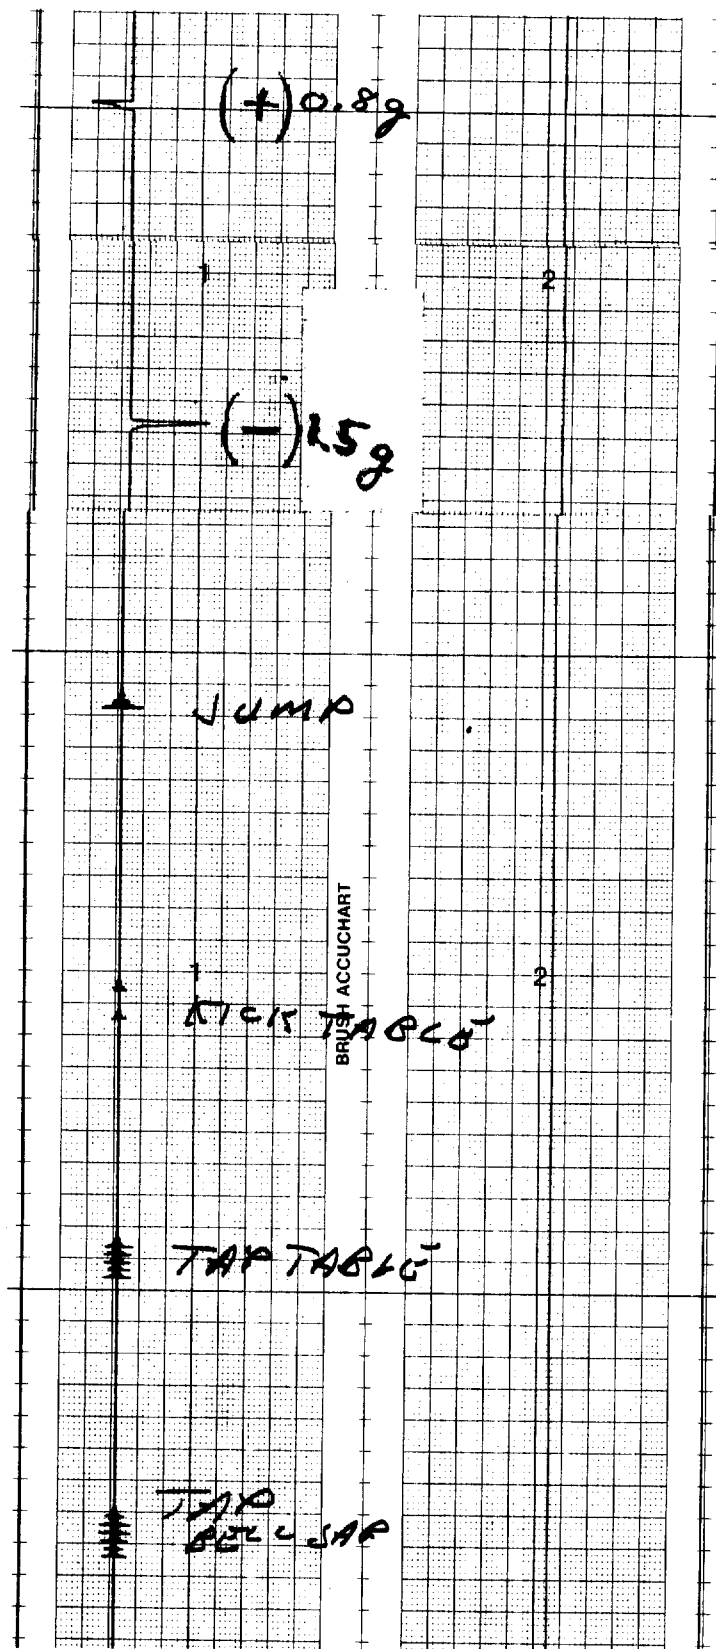 (+) 0.8g
1 2
(-) 1.5g
JUMP
BRUSH ACCUCHART
1 2
KICK TABLE
TAP TABLE
TAP
BELL JAR